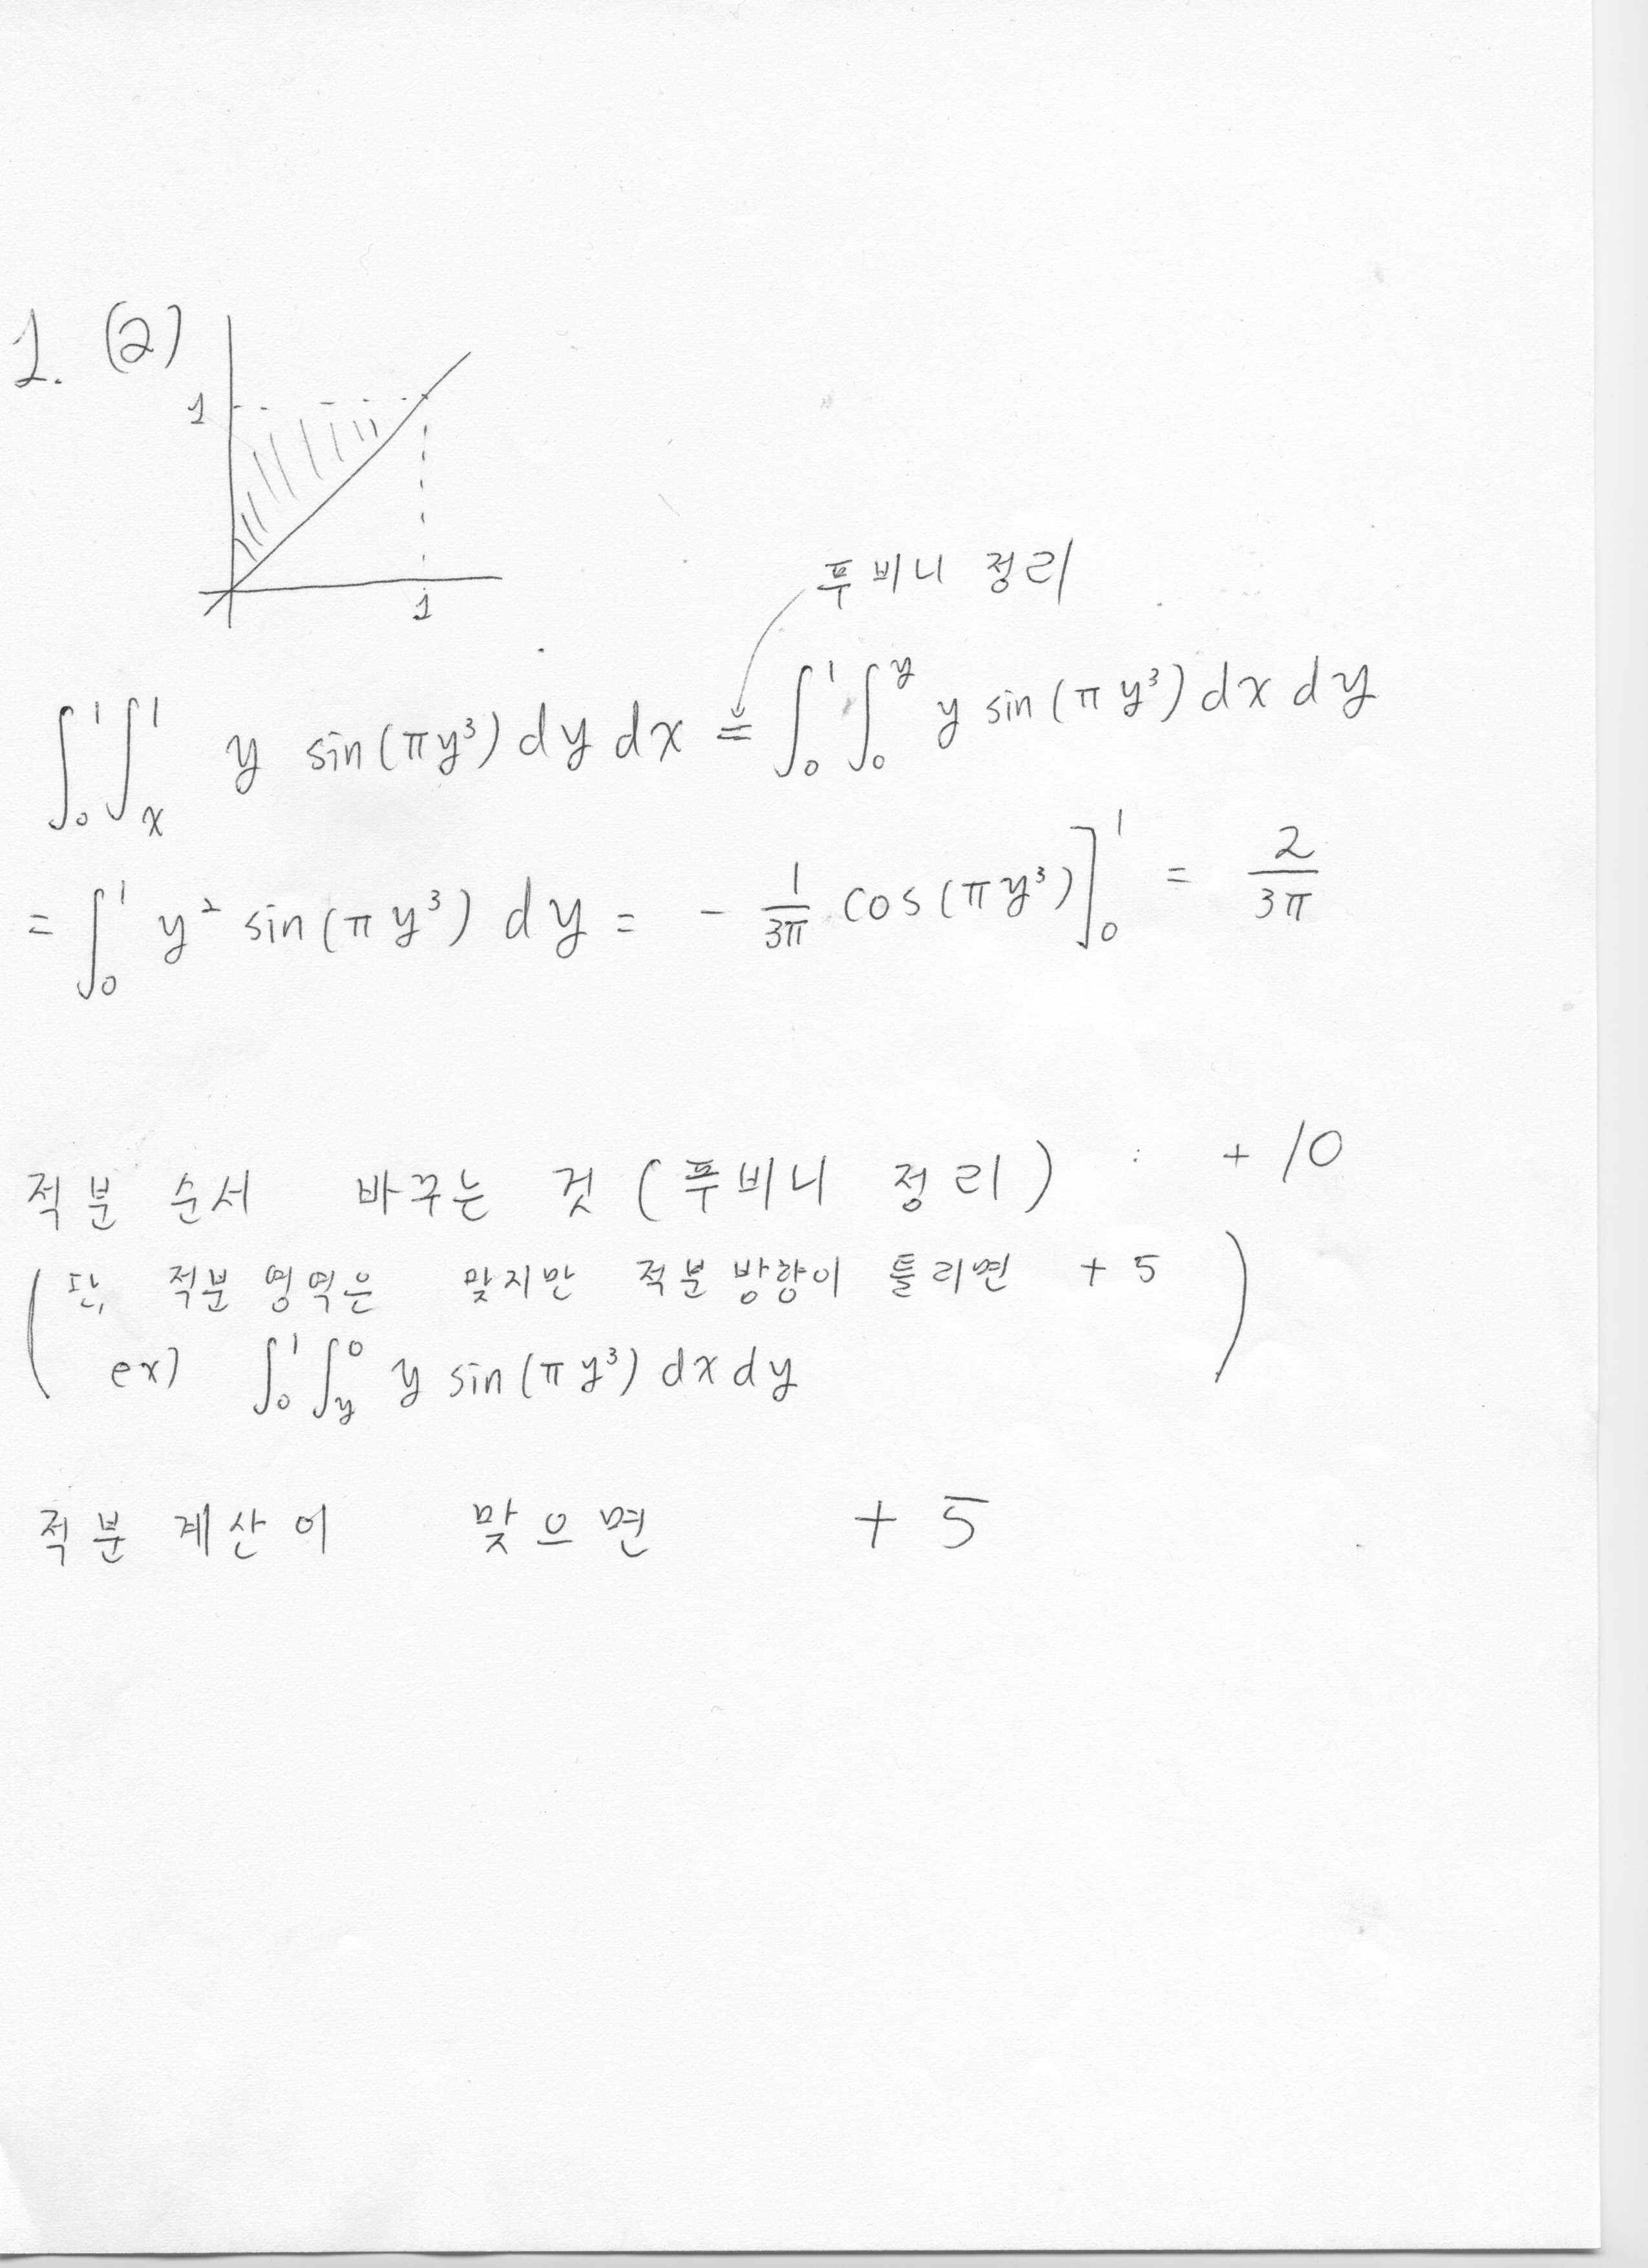 1. (2)
1
1
푸비니 정리
∫₀¹∫ₓ¹ y sin(πy³) dy dx = ∫₀¹∫₀ʸ y sin(πy³) dx dy
= ∫₀¹ y² sin(πy³) dy = - 1/3π cos(πy³)]₀¹ = 2/3π
적분 순서 바꾸는 것 (푸비니 정리) : + 10
(단, 적분 영역은 맞지만 적분 방향이 틀리면 + 5)
ex) ∫₀¹∫_y⁰ y sin(πy³) dx dy
적분 계산이 맞으면 + 5